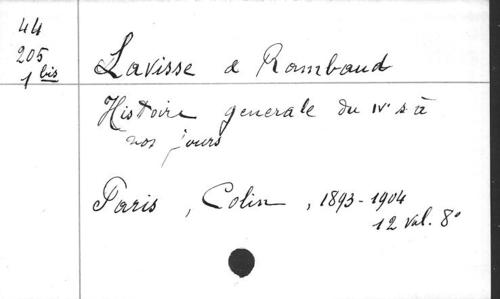 44
205
1 bis
Lavisse & Rambaud
Histoire generale du IVe s à
nos jours
Paris, Colin, 1893-1904
12 vol. 8°